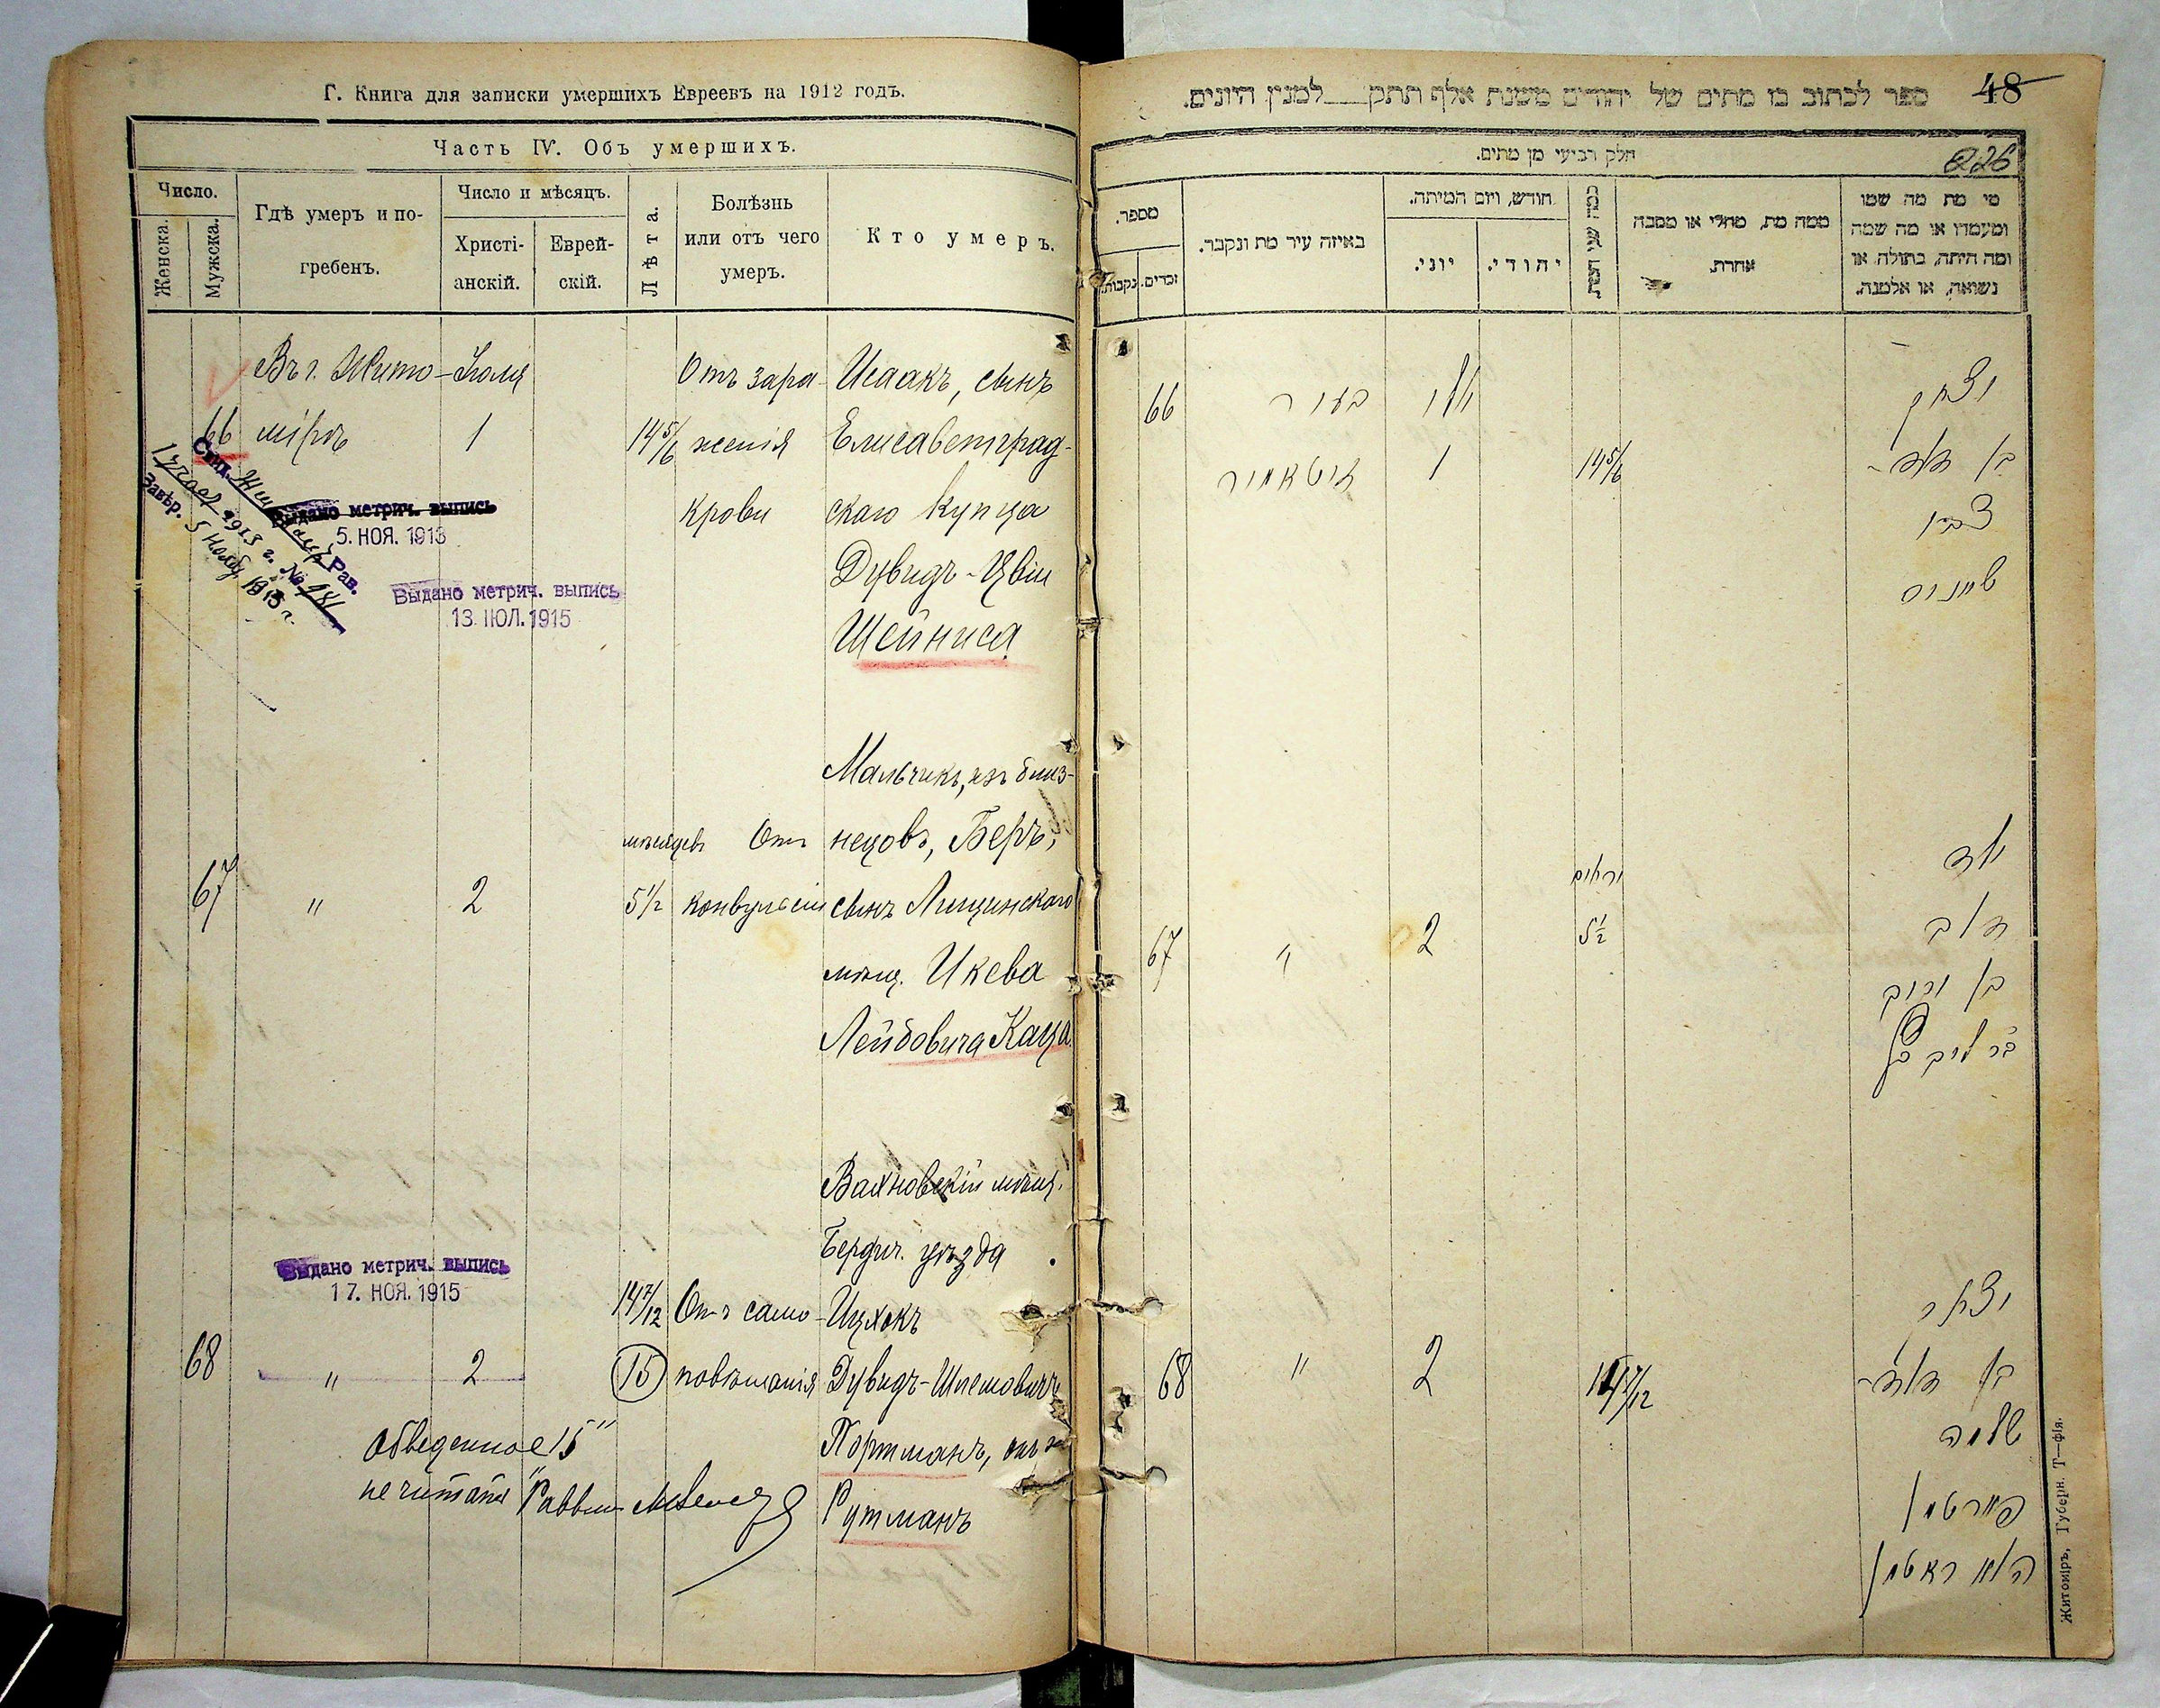 Г. Книга для записки умершихъ Евреевъ на 1912 годъ.
Часть IV. Объ умершихъ.
Число.
Женска.
Мужска.
Гдѣ умеръ и по-
гребенъ.
Число и мѣсяцъ.
Христі-
анскій.
Еврей-
скій.
Лѣта.
Болѣзнь
или отъ чего
умеръ.
Кто умеръ.
66
Въ г. Жито-
мірѣ
Іюля
1
14 5/6
Отъ зара-
женія
крови
Исаакъ, сынъ
Елисаветград-
скаго купца
Дувидъ-Цви
Шейниса
Свид.
Рав.
1913 г. № 481
Завѣр. 5 Нояб. 1913 г.
Выдано метрич. выпись
5. НОЯ. 1913
Выдано метрич. выпись
13 ІЮЛ. 1915
67
"
2
мѣсяцевъ
5 1/2
Отъ
конвульсіи
Мальчикъ, изъ близ-
нецовъ, Беръ,
сынъ Лещинскаго
мѣщ. Икева
Лейбовича Каца
Выдано метрич. выпись
17. НОЯ. 1915
68
"
2
14 7/12
15
Отъ само-
повѣшанія
Вахновскій мѣщ.
Бердич. уѣзда
Ицхокъ
Дувидъ-Шлемовичъ
Портманъ, онъ же
Рутманъ
Обведенное "15"
не читать Раввинъ
48
ספר לכתוב בו מתים של יהודים משנת אלף תתק למנין היונים.
226
חלק רביעי מן מתים.
מספר.
נקבות.
זכרים.
באיזה עיר מת ונקבר.
חודש, ויום המיתה.
יוני.
יהודי.
כמה שני המת
ממה מת, מחלי או מסבה
אחרת.
מי מת מה שמו
ומעמדו או מה שמה
ומה היתה, בתולה או
נשואה, או אלמנה.
66
בעיר
זיטאמיר
יולי
1
14 5/6
יצחק
בן דוד-
צבי
שיינוס
67
"
2
5 1/2
ילד
דוב
בן
בר ליב כץ
68
"
2
14 7/12
יצחק
בן דוד-
שלמה
פורטמן
הוא ראטמן
Житоміръ, Губерн. Т—фія.